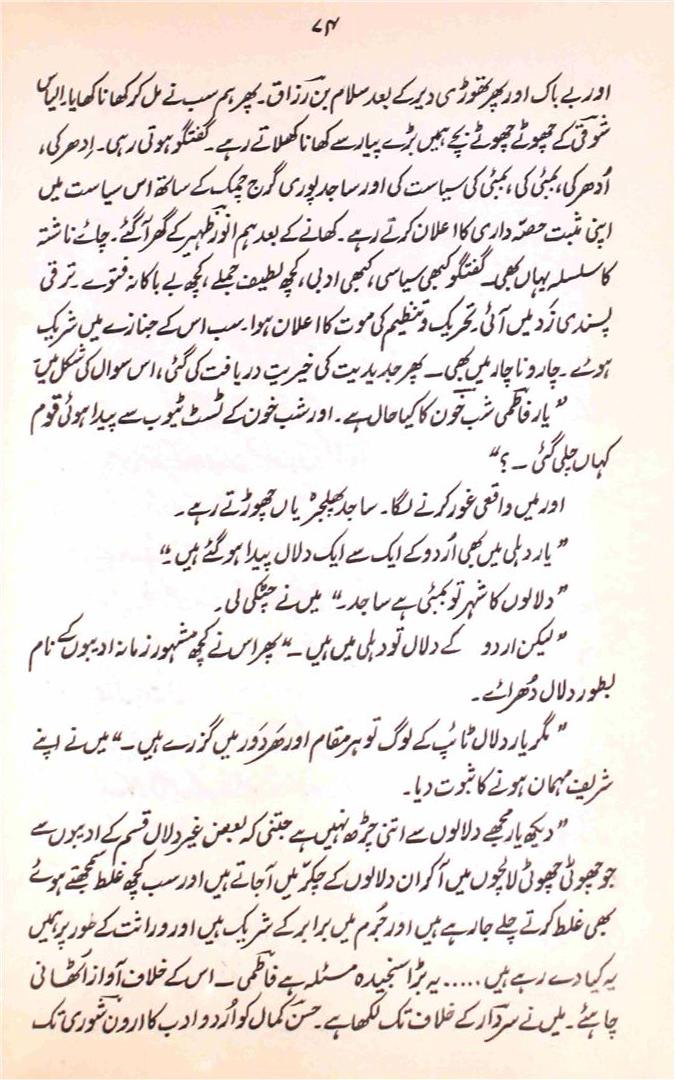 ۷۴
اور بے باک اور پھر تھوڑی دیر کے بعد سلام بن رزاق۔ پھر ہم سب نے مل کر کھانا کھایا۔ الیاس
شوقی کے چھوٹے چھوٹے بچے ہمیں بڑے پیار سے کھانا کھلاتے رہے۔ گفتگو ہوتی رہی۔ اِدھر کی،
اُدھر کی، بمبئی کی، بمبئی کی سیاست کی اور ساجد پوری گرج چمک کے ساتھ اس سیاست میں
اپنی مثبت حصّہ داری کا اعلان کرتے رہے۔ کھانے کے بعد ہم انور ظہیر کے گھر آ گئے۔ چائے ناشتہ
کا سلسلہ یہاں بھی۔ گفتگو کبھی سیاسی، کبھی ادبی، کچھ لطیف جملے، کچھ بے باکانہ فتوے۔ ترقی
پسندی زَد میں آئی۔ تحریک و تنظیم کی موت کا اعلان ہوا۔ سب اس کے جنازے میں شریک
ہوئے۔ چار و ناچار میں بھی۔ پھر جدیدیت کی خیریت دریافت کی گئی، اس سوال کی شکل میں۔
”یار فاطمی شب خون کا کیا حال ہے۔ اور شب خون کے ٹسٹ ٹیوب سے پیدا ہوئی قوم
کہاں چلی گئی ۔ ؟“
اور میں واقعی غور کرنے لگا۔ ساجد پھلجڑیاں چھوڑتے رہے۔
”یار دہلی میں بھی اُردو کے ایک سے ایک دلال پیدا ہو گئے ہیں۔“
”دلالوں کا شہر تو بمبئی ہے ساجد۔“ میں نے چٹکی لی۔
”لیکن اردو کے دلال تو دہلی میں ہیں۔“ پھر اس نے کچھ مشہور زمانہ ادیبوں کے نام
بطور دلال دُھرائے۔
”مگر یار دلال ٹائپ کے لوگ تو ہر مقام اور ہَر دَور میں گزرے ہیں۔“ میں نے اپنے
شریف مہمان ہونے کا ثبوت دیا۔
”دیکھ یار مجھے دلالوں سے اتنی چڑھ نہیں ہے جتنی کہ بعض غیر دلال قسم کے ادیبوں سے
جو چھوٹی چھوٹی لالچوں میں آ کر ان دلالوں کے چکّر میں آ جاتے ہیں اور سب کچھ غلط سمجھتے ہوئے
بھی غلط کرتے چلے جا رہے ہیں اور جُرم میں برابر کے شریک ہیں اور وراثت کے طور پر ہمیں
یہ کیا دے رہے ہیں ..... یہ بڑا سنجیدہ مسئلہ ہے فاطمی۔ اس کے خلاف آواز اُٹھانی
چاہئے۔ میں نے سردار کے خلاف تک لکھا ہے۔ حسن کمال کو اُردو ادب کا ارون شوری تک